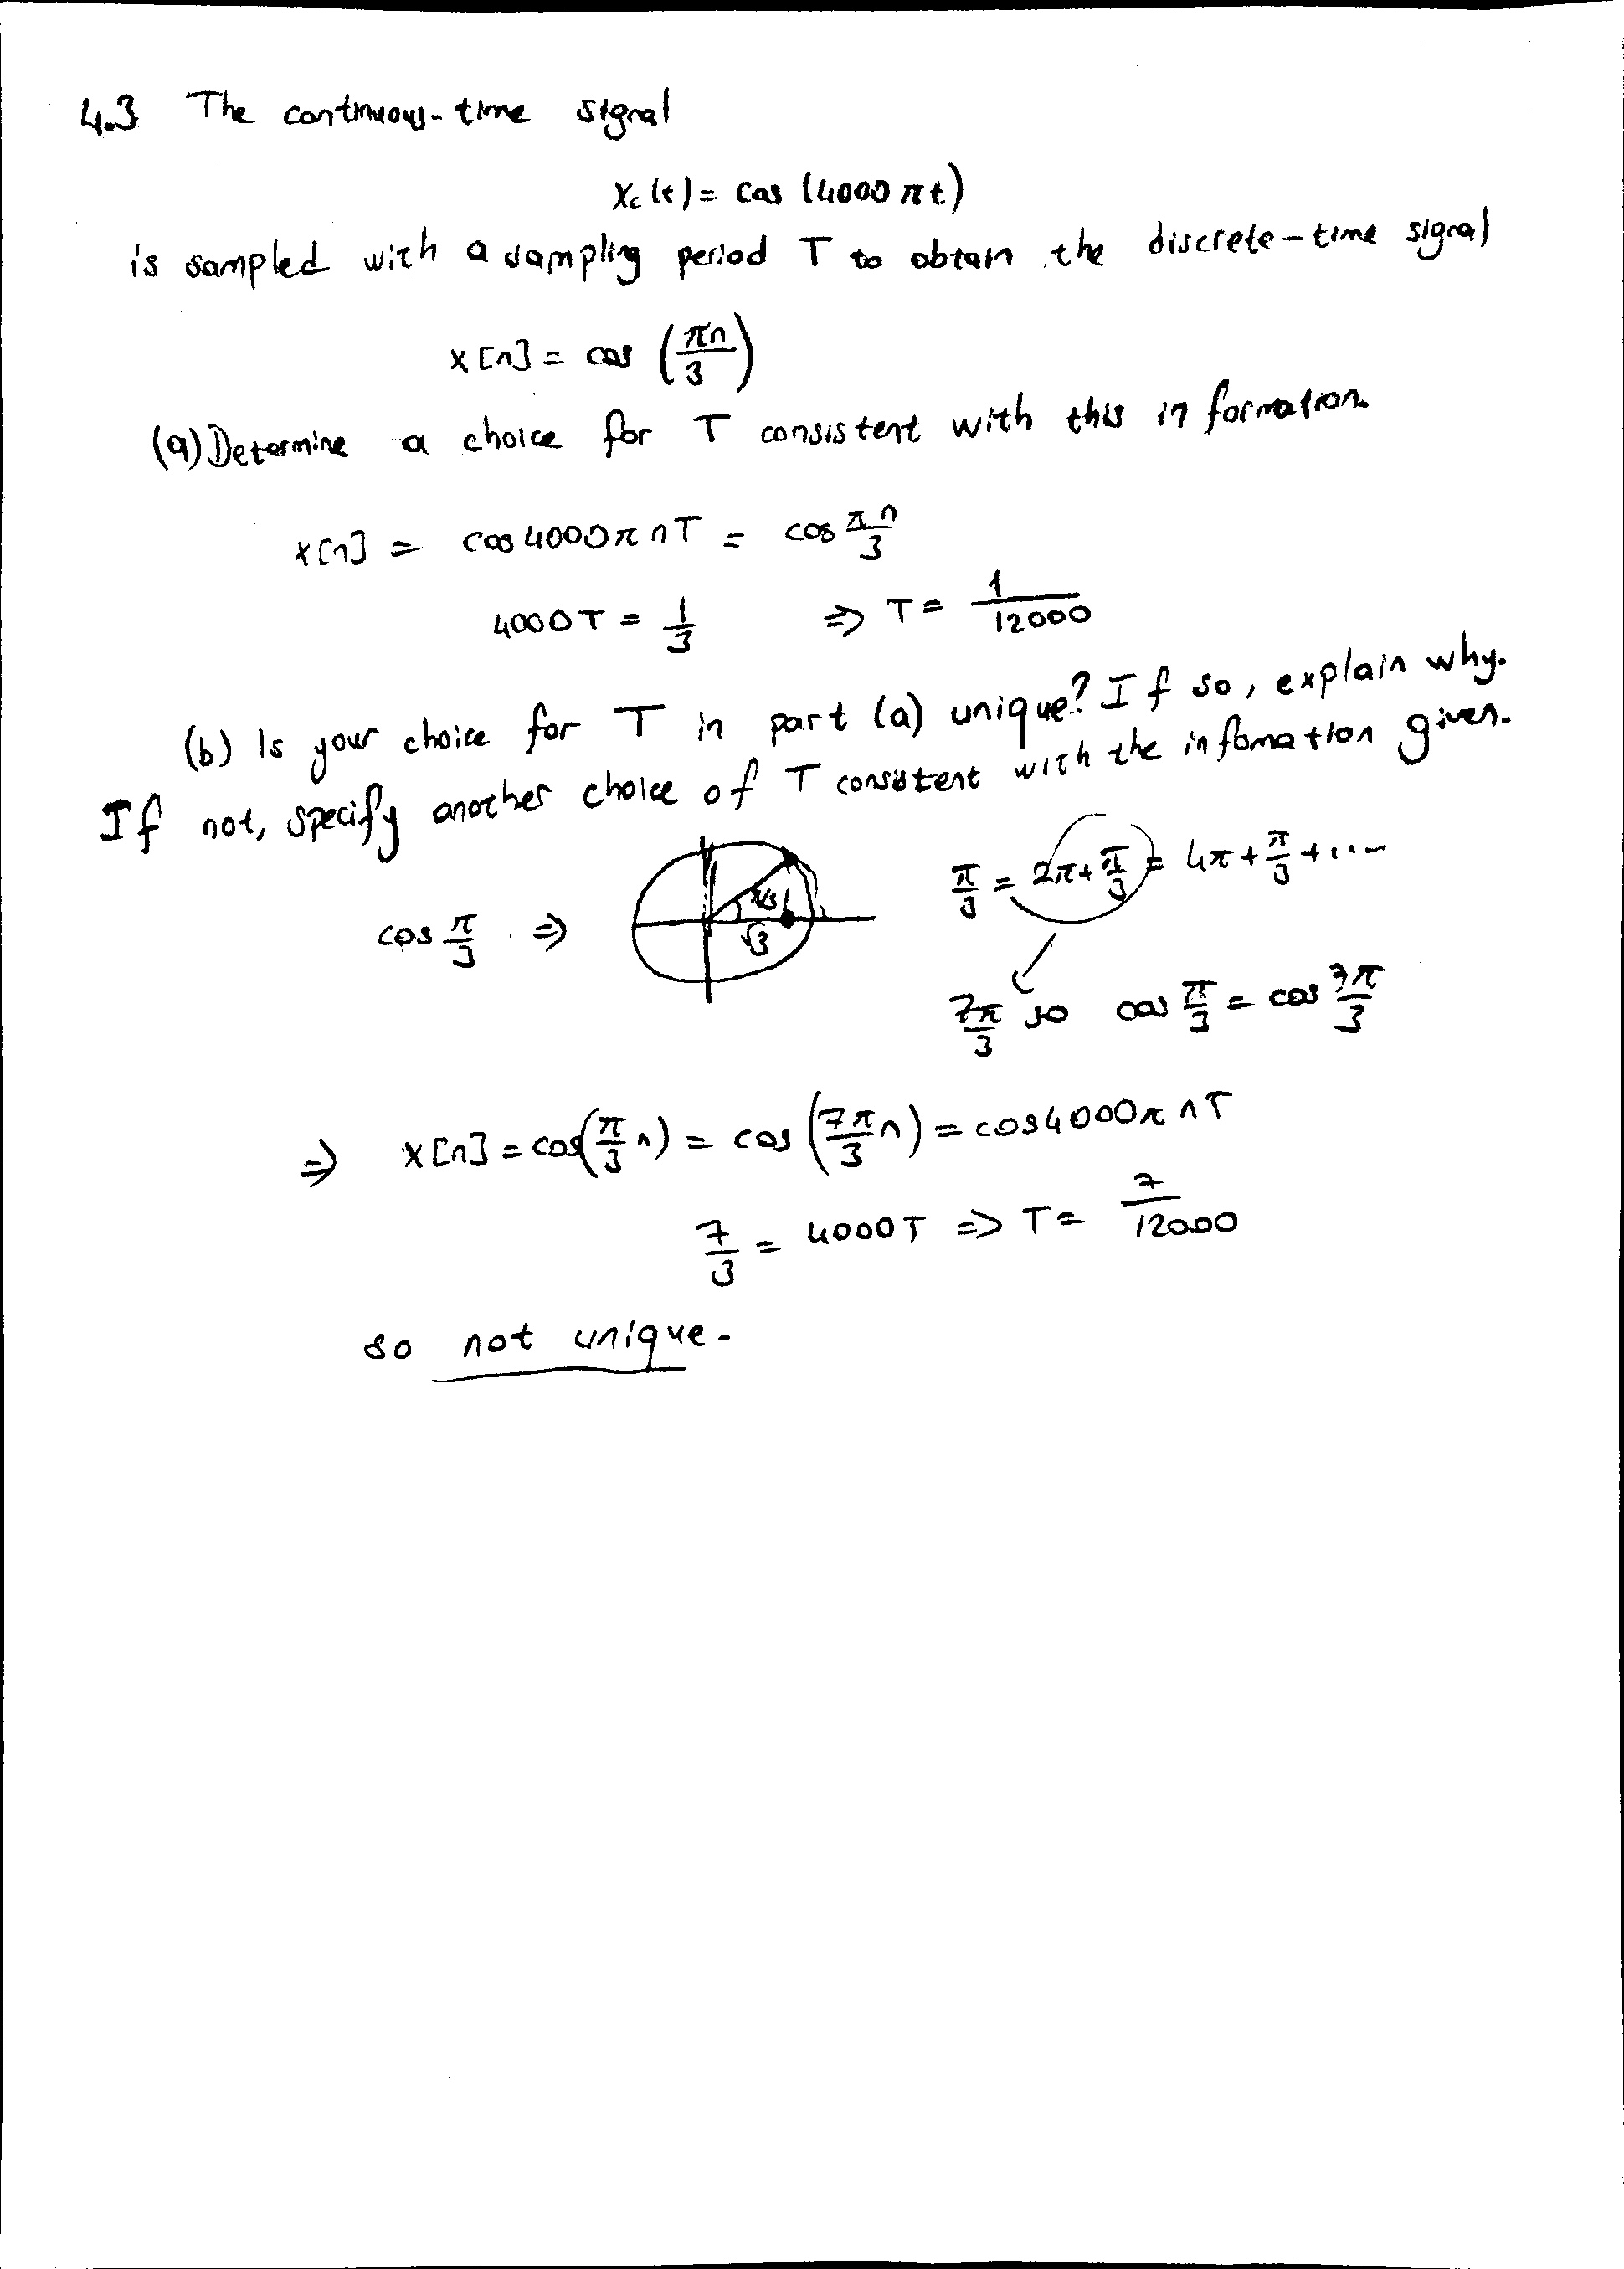 4.3 The continuous-time signal
Xc(t) = cos (4000πt)
is sampled with a sampling period T to obtain the discrete-time signal
x[n] = cos (πn/3)
(a) Determine a choice for T consistent with this information.
x[n] = cos 4000πnT = cos πn/3
4000T = 1/3 ⇒ T = 1/12000
(b) Is your choice for T in part (a) unique? If so, explain why.
If not, specify another choice of T consistent with the infomation given.
cos π/3 ⇒ π/3 √3 π/3 = 2π+π/3 = 4π+π/3+...
7π/3 so cos π/3 = cos 7π/3
⇒ x[n] = cos(π/3 n) = cos (7π/3 n) = cos4000πnT
7/3 = 4000T => T = 7/12000
so not unique.